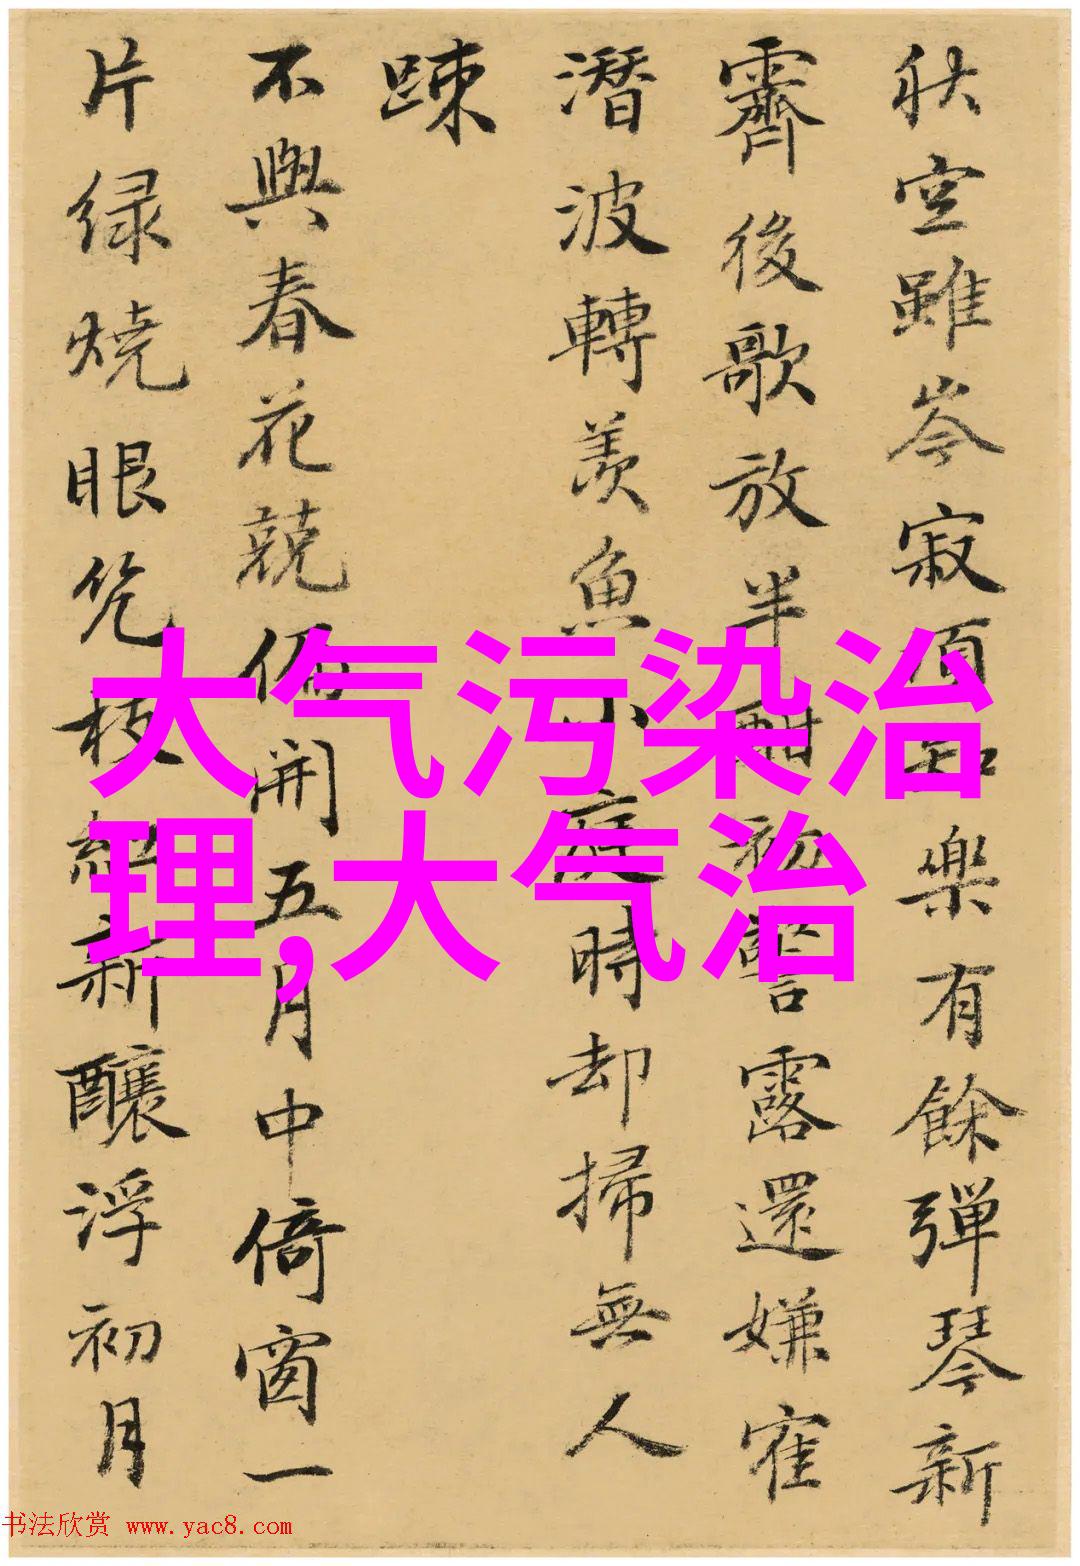 秋空雖岑寂頂知樂有餘彈琴新
霽後歌放半酣初警露還嫌寉
潛波轉羨魚小庭時却掃無人
踈
不與春花競偏開五月中倚窗一
片緑燒眼幾枝紅新釀浮初月
大气污染治
理,大气治
书法欣赏 www.yac8.com